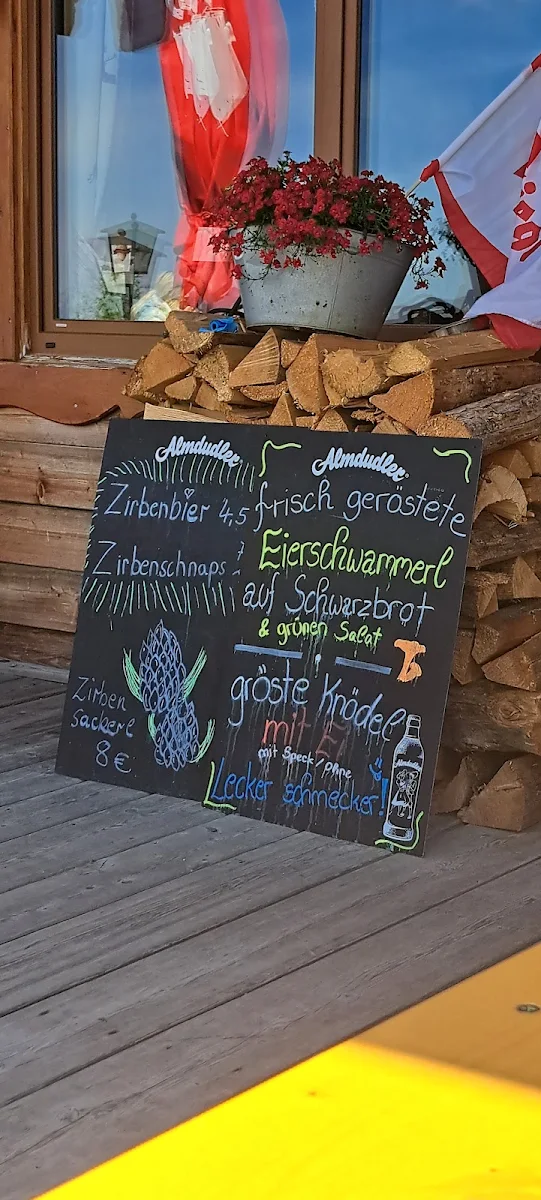 Almdudler
Zirbenbier 4,5
Zirbenschnaps
Zirben
sackerl
8 €
Almdudler
frisch geröstete
Eierschwammerl
auf Schwarzbrot
& grünen Salat
gröste Knödel
mit Ei
mit Speck/ohne
Lecker schmecker!